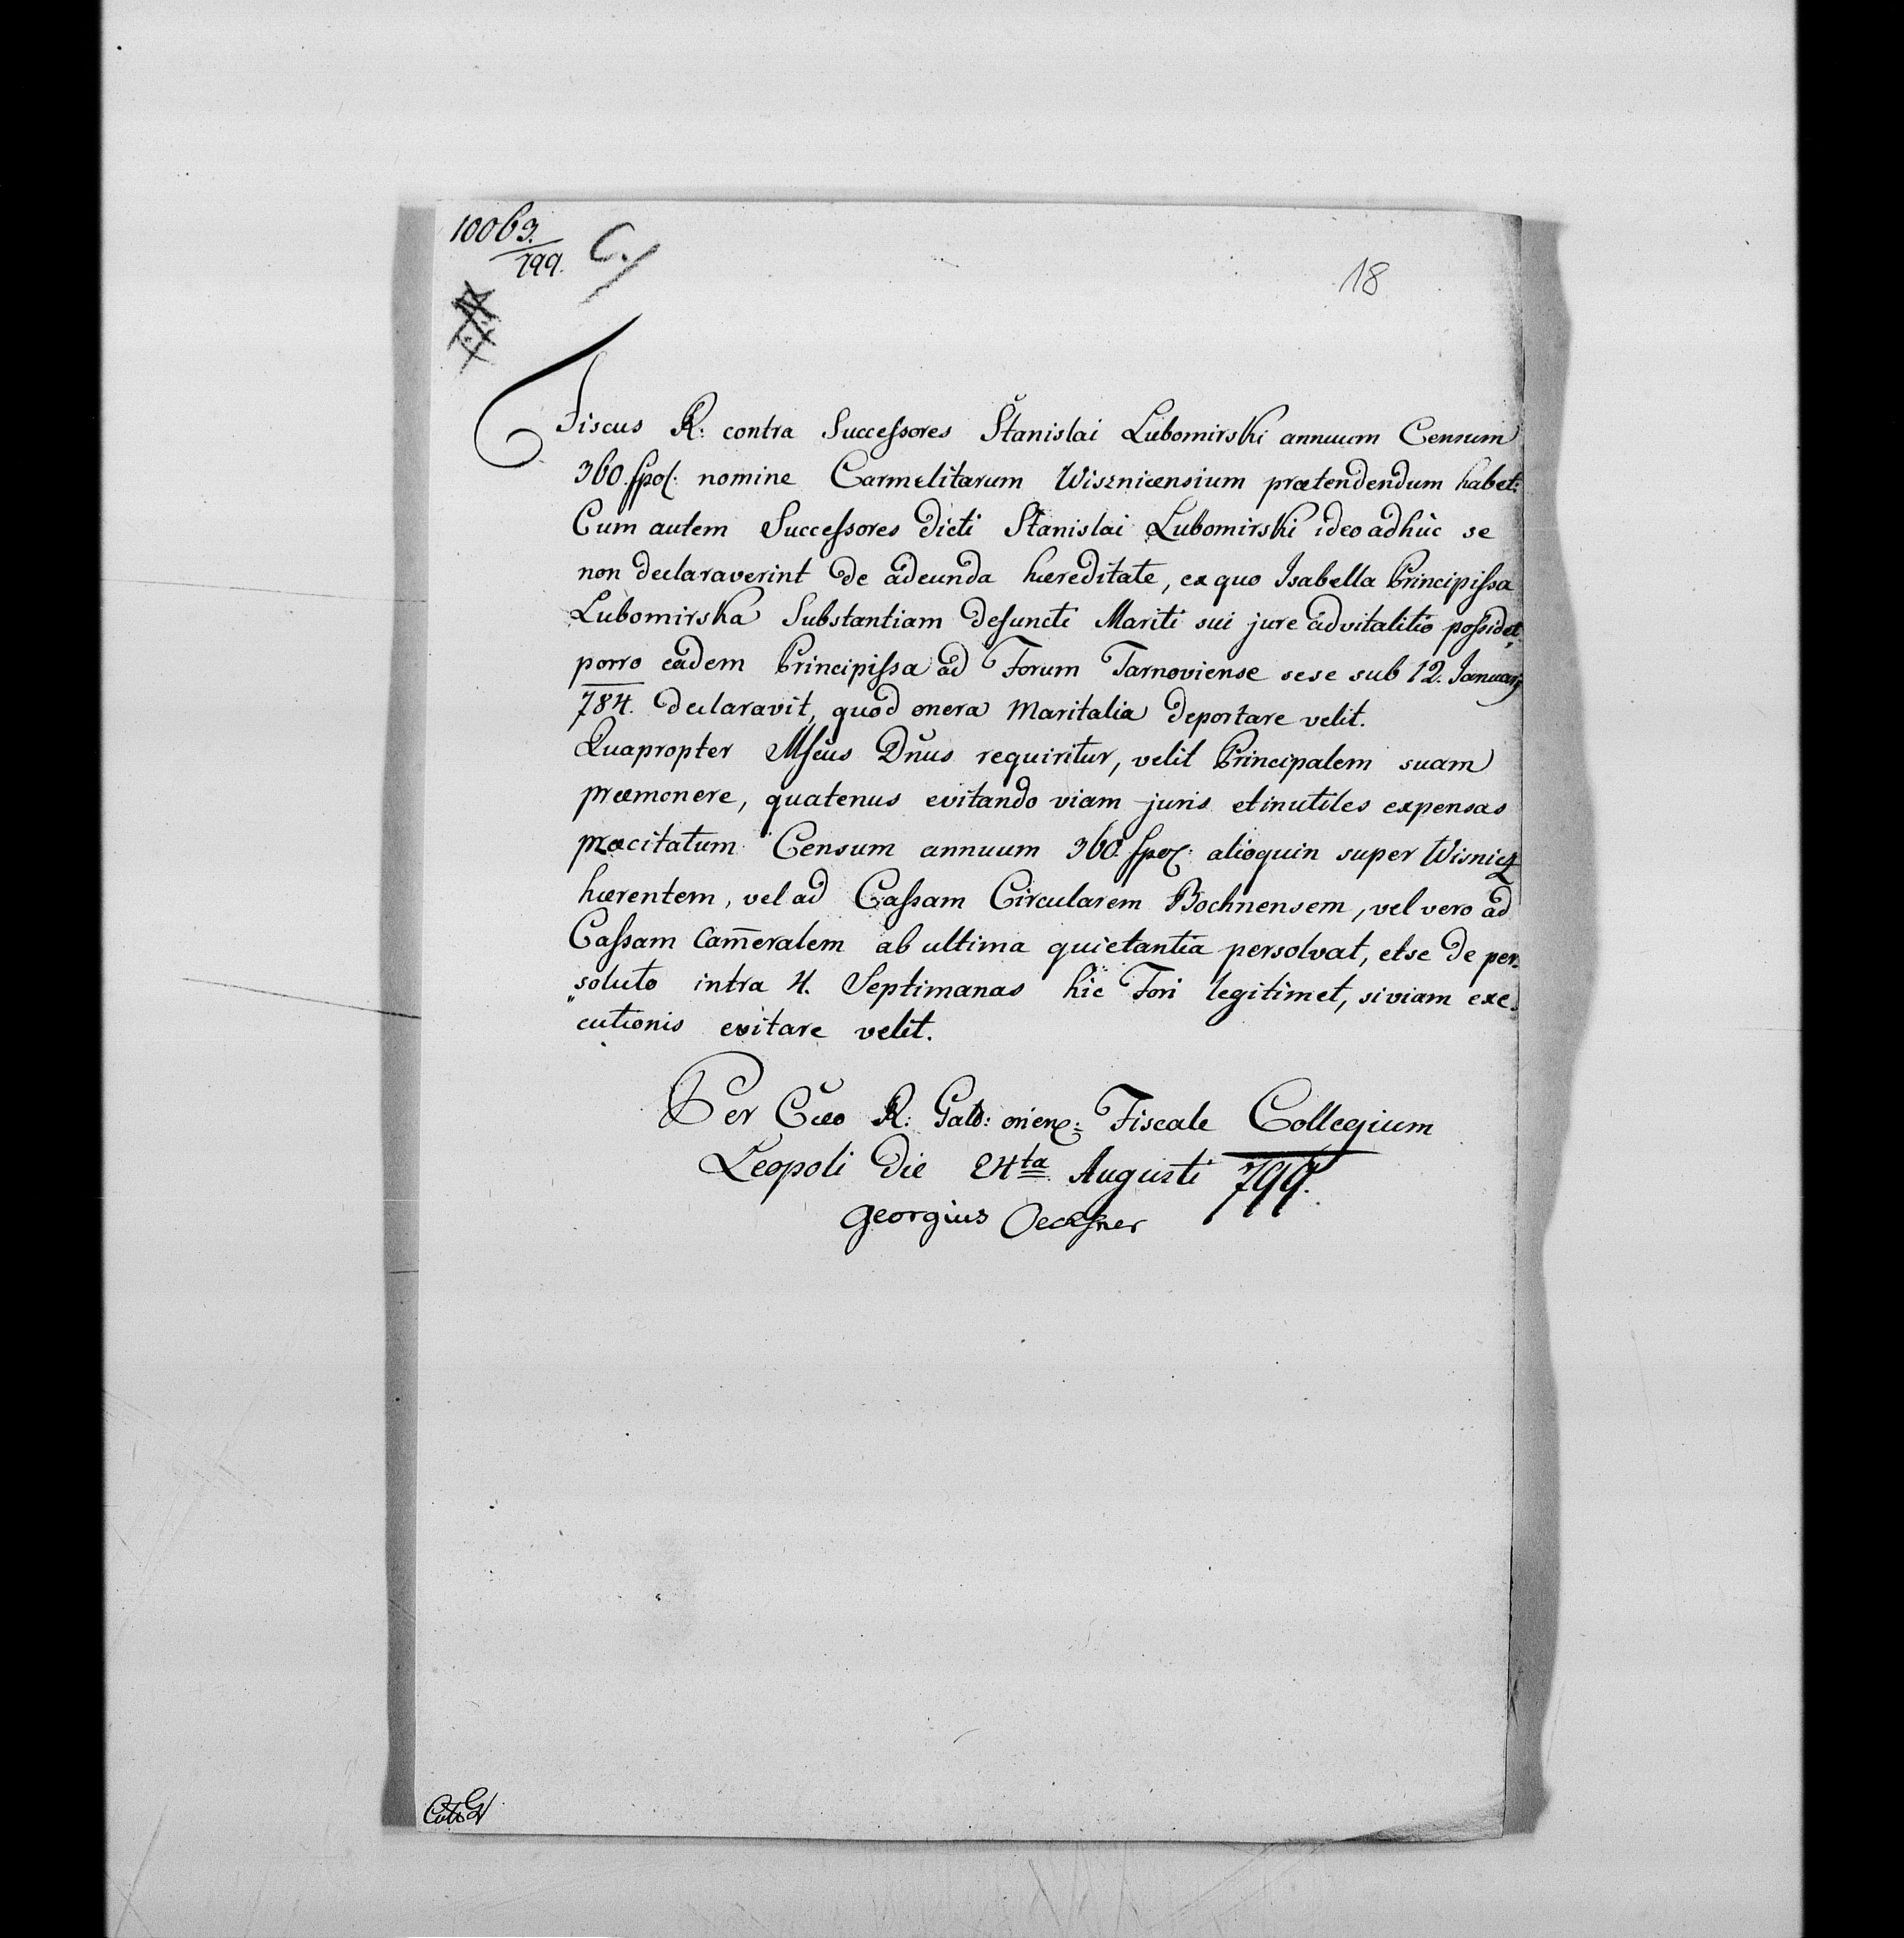 10063.
799.
C./
18
Fiscus R: contra Successores Stanislai Lubomirski annuum Censum
360. fpol: nomine Carmelitarum Wisznicensium prætendendum habet:
Cum autem Successores dicti Stanislai Lubomirski ideo adhuc se
non declaraverint de adeunda hæreditate, ex quo Isabella Principissa
Lubomirska Substantiam defuncti Mariti sui jure advitalitio possidet.
porro eadem Principissa ad Forum Tarnoviense sese sub 12. Januarij
784. declaravit, quod onera Maritalia deportare velit.
Quapropter Mfcus Dnus requiritur, velit Principalem suam
præmonere, quatenus evitando viam juris et inutiles expensas
præcitatum Censum annuum 360. fpol: alioquin super Wisnicz
hærentem, vel ad Cassam Circularem Bochnensem, vel vero ad
Cassam Cam̄eralem ab ultima quietantia persolvat, et se de per:
"soluto intra 4. Septimanas hic Fori legitimet, si viam exe:
"cutionis evitare velit.
Per Cæo R: Gal: orien: Fiscale Collegium
Leopoli die 24ta Augusti 799.
Georgius Oechsner